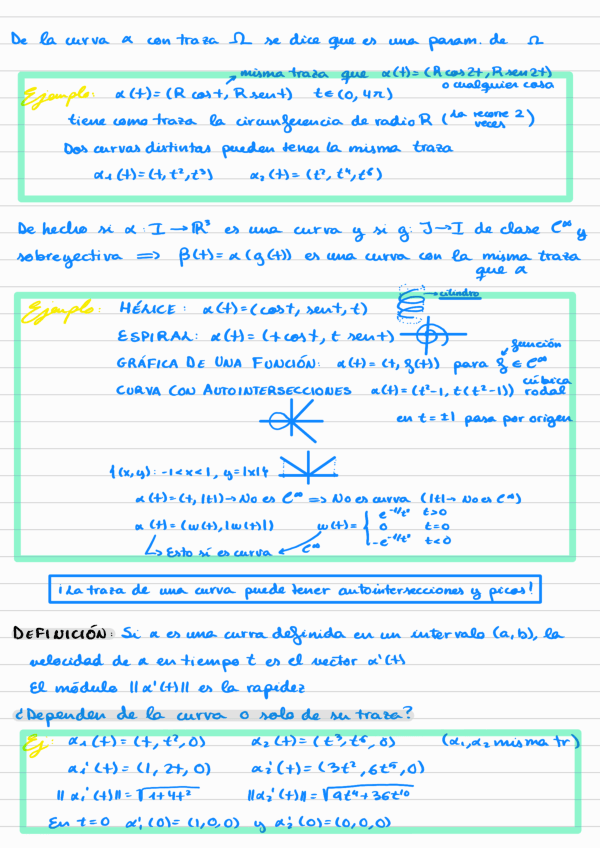 De la curva α con traza Ω se dice que es una param. de Ω
misma traza que α(t)=(R cos2t, R sen2t)
o cualquier cosa
Ejemplo: α(t)=(R cost, R sent) t∈(0,4π)
tiene como traza la circunferencia de radio R (la recorre 2 veces)
Dos curvas distintas pueden tener la misma traza
α₁(t)=(t,t²,t³) α₂(t)=(t²,t⁴,t⁶)
De hecho si α: I→ℝ³ es una curva y si g: J→I de clase C^∞ y
sobreyectiva ⟹ β(t)=α(g(t)) es una curva con la misma traza
que α
Ejemplo: HÉLICE: α(t)=(cost, sent, t) →cilindro
ESPIRAL: α(t)=(t cost, t sent)
función
GRÁFICA DE UNA FUNCIÓN: α(t)=(t, f(t)) para f ∈ C^∞
CURVA CON AUTOINTERSECCIONES α(t)=(t²-1, t(t²-1)) cúbica nodal
en t=±1 pasa por origen
{(x,y): -1<x<1, y=|x|}
α(t)=(t,|t|)→No es C^∞ ⟹ No es curva (|t|→ No es C^∞)
α(t)=(w(t),|w(t)|) w(t)= { e^{-1/t²} t>0
0 t=0
-e^{-1/t²} t<0
↳ Esto sí es curva C^∞
¡La traza de una curva puede tener autointersecciones y picos!
DEFINICIÓN: Si α es una curva definida en un intervalo (a,b), la
velocidad de α en tiempo t es el vector α'(t)
El módulo ||α'(t)|| es la rapidez
¿Dependen de la curva o solo de su traza?
Ej: α₁(t)=(t, t², 0) α₂(t)=(t³, t⁶, 0) (α₁,α₂ misma tr)
α₁'(t)=(1, 2t, 0) α₂'(t)=(3t², 6t⁵, 0)
||α₁'(t)||=√(1+4t²) ||α₂'(t)||=√(9t⁴+36t¹⁰)
En t=0 α₁'(0)=(1,0,0) y α₂'(0)=(0,0,0)